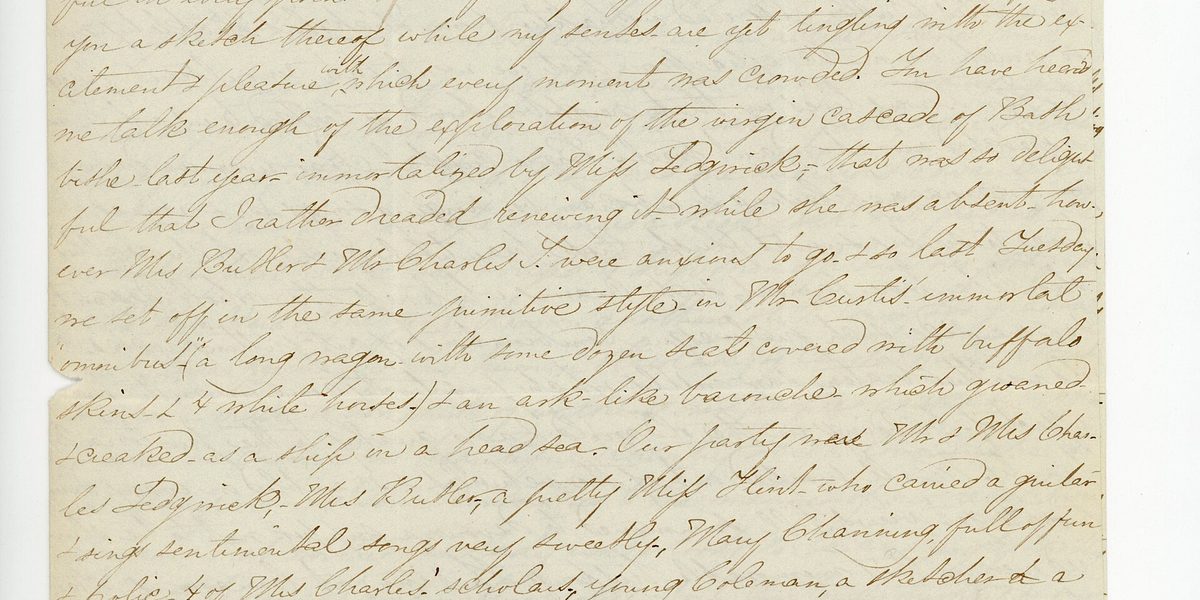 you a sketch thereof while my senses are yet tingling with the ex-
citement & pleasure with which every moment was crowded. You have heard
me talk enough of the exploration of the virgin cascade of Bash
bishe last year - immortalized by Miss Sedgwick, - that was so delight
ful that I rather dreaded renewing it - while she was absent - how-
ever Mrs Butler & Mr Charles S. were anxious to go - & so last Tuesday
we set off in the same primitive style - in Mr Curtis' immortal
"omnibus" (a long wagon with some dozen seats covered with buffalo
skins - & 4 white horses -) & an ark-like barouche - which groaned
& creaked - as a ship in a head sea. Our party were Mr & Mrs Char-
les Sedgwick, - Mrs Butler, a pretty Miss Flint - who carried a guitar
& sings sentimental songs very sweetly -, Mary Channing, full of fun
& frolic - 4 of Mrs Charles' scholars, young Coleman, a sketcher & a